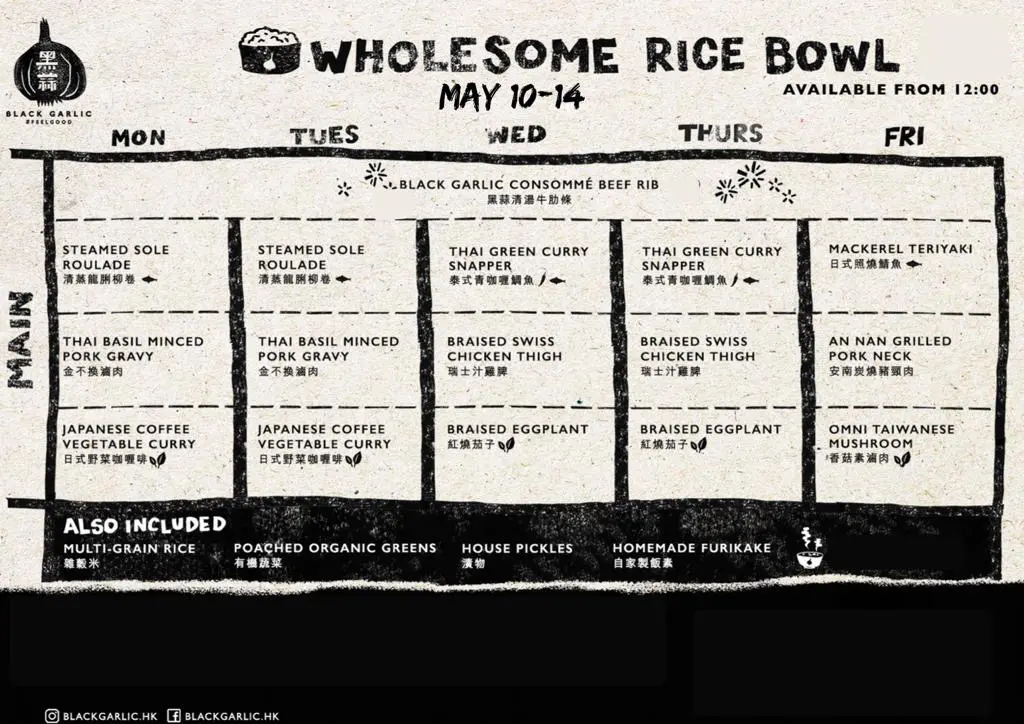 黑蒜
BLACK GARLIC
#FEELGOOD
WHOLESOME RICE BOWL
MAY 10-14
AVAILABLE FROM 12:00
MON TUES WED THURS FRI
BLACK GARLIC CONSOMMÉ BEEF RIB
黑蒜清湯牛肋條
MAIN
STEAMED SOLE
ROULADE
清蒸龍脷柳卷
STEAMED SOLE
ROULADE
清蒸龍脷柳卷
THAI GREEN CURRY
SNAPPER
泰式青咖喱鯛魚
THAI GREEN CURRY
SNAPPER
泰式青咖喱鯛魚
MACKEREL TERIYAKI
日式照燒鯖魚
THAI BASIL MINCED
PORK GRAVY
金不換滷肉
THAI BASIL MINCED
PORK GRAVY
金不換滷肉
BRAISED SWISS
CHICKEN THIGH
瑞士汁雞脾
BRAISED SWISS
CHICKEN THIGH
瑞士汁雞脾
AN NAN GRILLED
PORK NECK
安南炭燒豬頸肉
JAPANESE COFFEE
VEGETABLE CURRY
日式野菜咖喱啡
JAPANESE COFFEE
VEGETABLE CURRY
日式野菜咖喱啡
BRAISED EGGPLANT
紅燒茄子
BRAISED EGGPLANT
紅燒茄子
OMNI TAIWANESE
MUSHROOM
香菇素滷肉
ALSO INCLUDED
MULTI-GRAIN RICE
雜穀米
POACHED ORGANIC GREENS
有機蔬菜
HOUSE PICKLES
漬物
HOMEMADE FURIKAKE
自家製飯素
BLACKGARLIC.HK BLACKGARLIC.HK